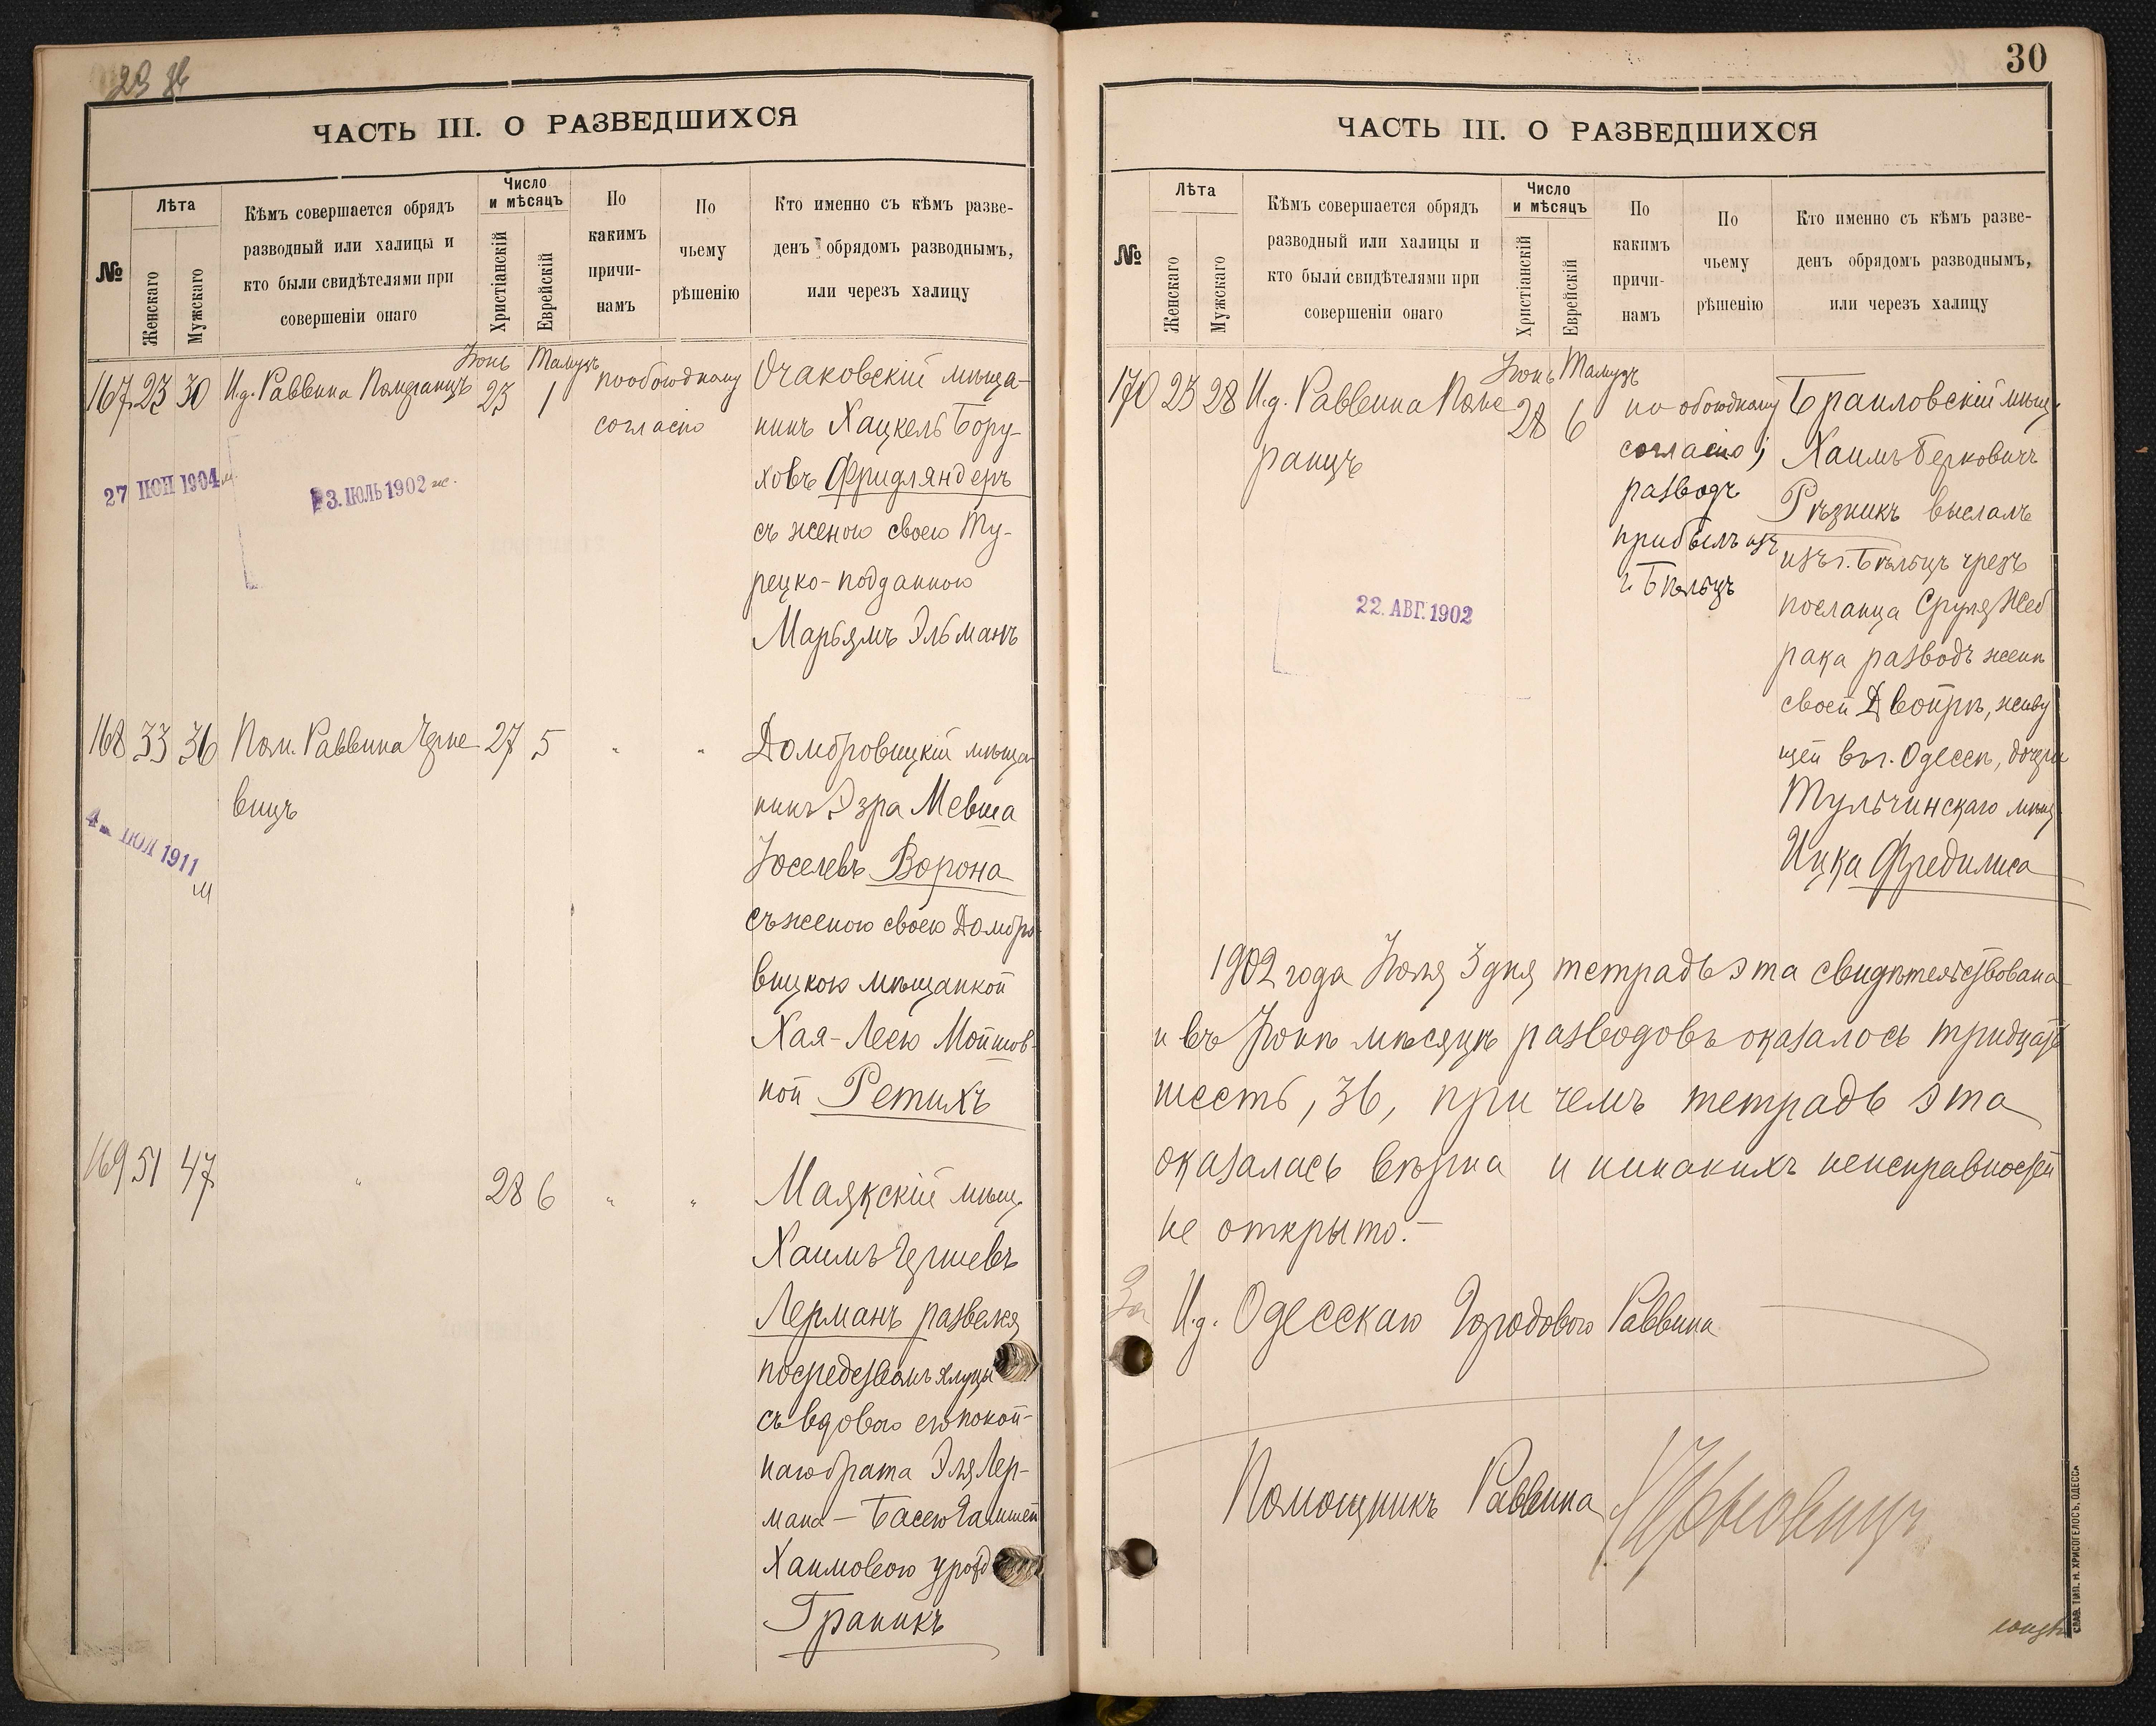 ЧАСТЬ III. О РАЗВЕДШИХСЯ
№
Лѣта
Женскаго
Мужскаго
Кѣмъ совершается обрядъ
разводный или халицы и
кто были свидѣтелями при
совершеніи онаго
Число
и мѣсяцъ
Христіанскій
Еврейскій
По
какимъ
причи-
намъ
По
чьему
рѣшенію
Кто именно съ кѣмъ разве-
денъ обрядомъ разводнымъ,
или черезъ халицу
Іюнь Тамузъ
167 23 30 И.д. Раввина 23 1
пообоюдному
согласію
Очаковскій мѣща-
нинъ Хацкель Бору-
ховъ Фридляндеръ
съ женою своею Ту-
рецко-подданною
Марьямъ Эльманъ
27 ІЮН 1904 м.
3. ІЮЛЬ 1902 ж.
168 33 36 Пом. Раввина Черно 27 5 " "
вицъ
Домбровицкій мѣща-
нинъ Эзра Мевша
Іоселевъ Ворона
съ женою своею Домбро-
вицкою мѣщанкой
Хая-Леею Мойшов-
ной Ретихъ
4 - ІЮЛ 1911
м
169 51 47 " 28 6 " "
Маякскій мѣщ.
Хаимъ Гершевъ
Лерманъ развелся
посредствомъ
съ вдовою его покой-
наго брата Эля Лер-
мана — Басею
Хаимовою
Граникъ
30
ЧАСТЬ III. О РАЗВЕДШИХСЯ
№
Лѣта
Женскаго
Мужскаго
Кѣмъ совершается обрядъ
разводный или халицы и
кто были свидѣтелями при
совершеніи онаго
Число
и мѣсяцъ
Христіанскій
Еврейскій
По
какимъ
причи-
намъ
По
чьему
рѣшенію
Кто именно съ кѣмъ разве-
денъ обрядомъ разводнымъ,
или черезъ халицу
Іюнь Тамузъ
170 23 28 И.д. Раввина Поме 28 6
ранцъ
по обоюдному
согласію;
разводъ
прибылъ изъ
г. Бѣльцъ
Браиловскій мѣщ.
Хаимъ Берковичъ
Рѣзникъ выслалъ
изъ г. Бѣльцъ чрезъ
посланца Сруля Жеб
рака разводъ женѣ
своей Двойрѣ, живу
щей въ г. Одессѣ, дочери
Тульчинскаго мѣщ.
Ицка
22. АВГ. 1902
1902 года Іюля 3 дня тетрадь эта свидѣтельствована
и въ Іюнѣ мѣсяцѣ разводовъ оказалось тридцать
шесть, 36, при чемъ тетрадь эта
оказалась вѣрна и никакихъ неисправностей
не открыто.—
За И.д. Одесскаго Городового Раввина
Помощникъ Раввина
СЛАВ. ТИП. Н. ХРИСОГЕЛОСЪ, ОДЕССА